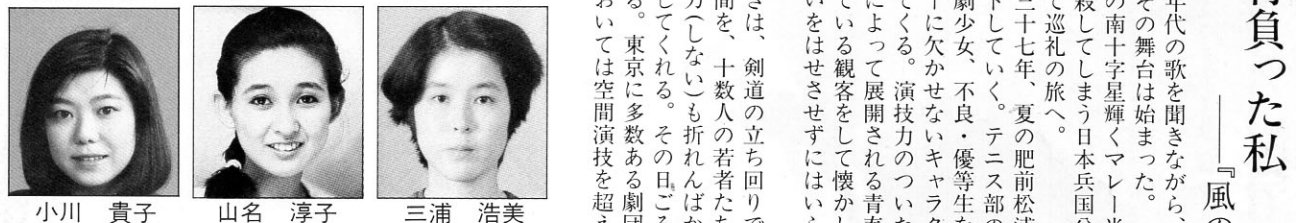 負った私
――『風の
年代の歌を聞きながら、
その舞台は始まった。
の南十字星輝くマレー
殺してしまう日本兵国
て巡礼の旅へ。
三十七年、夏の肥前松浦
トしていく。テニス部の
劇少女、不良・優等生な
ーに欠かせないキャラク
てくる。演技力のついた
によって展開される青春
ている観客をして懐かし
いをはせさせずにはいら
きは、剣道の立ち回りで
間を、十数人の若者たち
刀(しない)も折れんばか
してくれる。その日ごろ
る。東京に多数ある劇団
おいては空間演技を超え
小川 貴子
山名 淳子
三浦 浩美